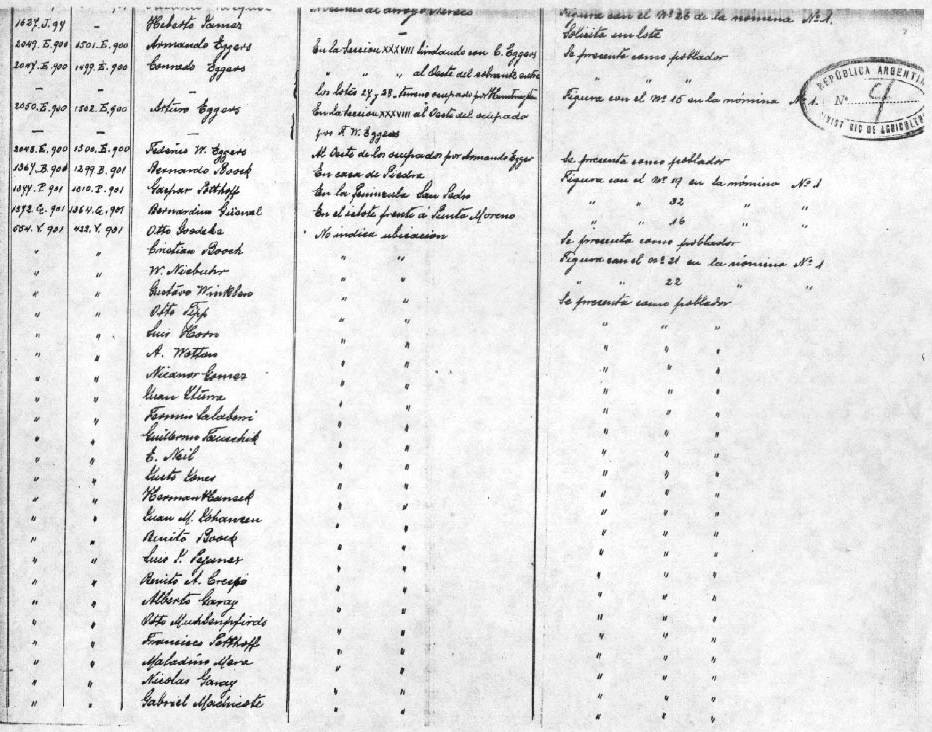 1627.J.99 — Heberto James Solicita un lote
2049.E.900 1501.E.900 Armando Eggers En la Sección XXXVIII lindando con C. Eggers Se presenta como poblador
2047.E.900 1499.E.900 Conrado Eggers " " " al Oeste del sobrante entre " " "
— — los lotes 27 y 28, terreno ocupado por
2050.E.900 1502.E.900 Arturo Eggers En la Sección XXXVIII al Oeste del ocupado Figura con el Nº 15 en la nómina Nº 1.
— — por F. W. Eggers
2048.E.900 1500.E.900 Federico W. Eggers Al Oeste de los ocupados por Armando Egger Se presenta como poblador
1367.B.900 1299.B.901 Bernardo Boock En casa de Piedra Figura con el Nº 19 en la nómina Nº 1
1044.P.901 1010.P.901 Gaspar Potthoff En la Península San Pedro " " 32 " "
1372.G.901 1364.G.901 Bernardino En el islote frente á Punta Moreno " " 16 " "
554.V.901 422.V.901 Otto Goedeke No indica ubicacion Se presenta como poblador
" " Cristian Boock " " Figura con el Nº 21 en la nómina Nº 1
" " W. Niebuhr " " " " 22 " "
" " Gustavo Winkler " " Se presenta como poblador
" " Otto Tipp " " " " "
" " Luis Horn " " " " "
" " A. " " " " "
" " Nicanor Gomez " " " " "
" " Juan " " " " "
" " Fermin " " " " "
" " Guillermo " " " " "
" " E. Neil " " " " "
" " Justo Jones " " " " "
" " Herman Hansek " " " " "
" " Juan M. " " " " "
" " Benito Boock " " " " "
" " Luis " " " " "
" " Benito A. Crespo " " " " "
" " Alberto Garay " " " " "
" " Otto Muhlenpfordt " " " " "
" " Francisco Potthoff " " " " "
" " Maladino Mera " " " " "
" " Nicolas Garay " " " " "
" " Gabriel " " " " "
REPÚBLICA ARGENTINA
Nº 9
DE AGRICULTURA